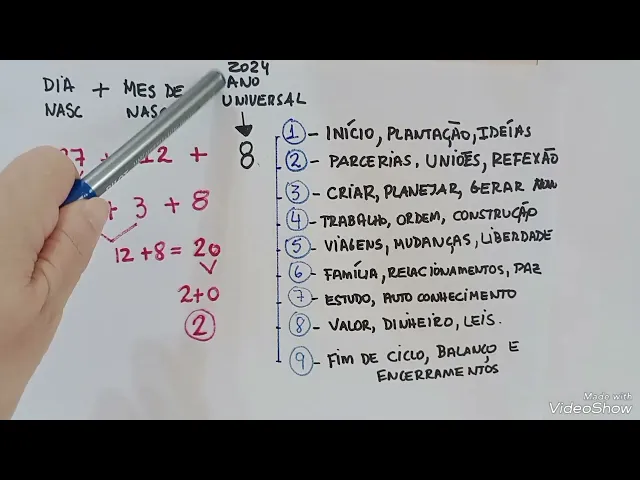 2024
DIA + MES DE ANO
NASC NASC UNIVERSAL
27 + 12 + 8
+ 3 + 8
12 + 8 = 20
2+0
2
1 - INÍCIO, PLANTAÇÃO, IDEÍAS
2 - PARCERIAS, UNIÕES, REFEXÃO
3 - CRIAR, PLANEJAR, GERAR
4 - TRABALHO, ORDEM, CONSTRUÇÃO
5 - VIAGENS, MUDANÇAS, LIBERDADE
6 - FAMÍLIA, RELACIONAMENTOS, PAZ
7 - ESTUDO, AUTO CONHECIMENTO
8 - VALOR, DINHEIRO, LEIS.
9 - FIM DE CICLO, BALANÇO E
ENCERRAMENTOS
Made with
VideoShow